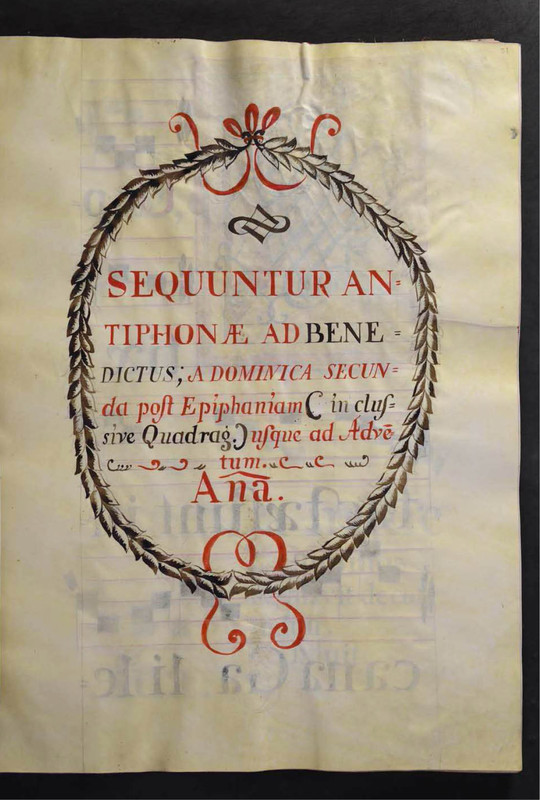 SEQUUNTUR AN=
TIPHONÆ AD BENE=
DICTUS; A DOMINICA SECUN=
da poſt Epiphaniam ( in cluſ=
sive Quadrag.) uſque ad Advē
tum.
Anã.